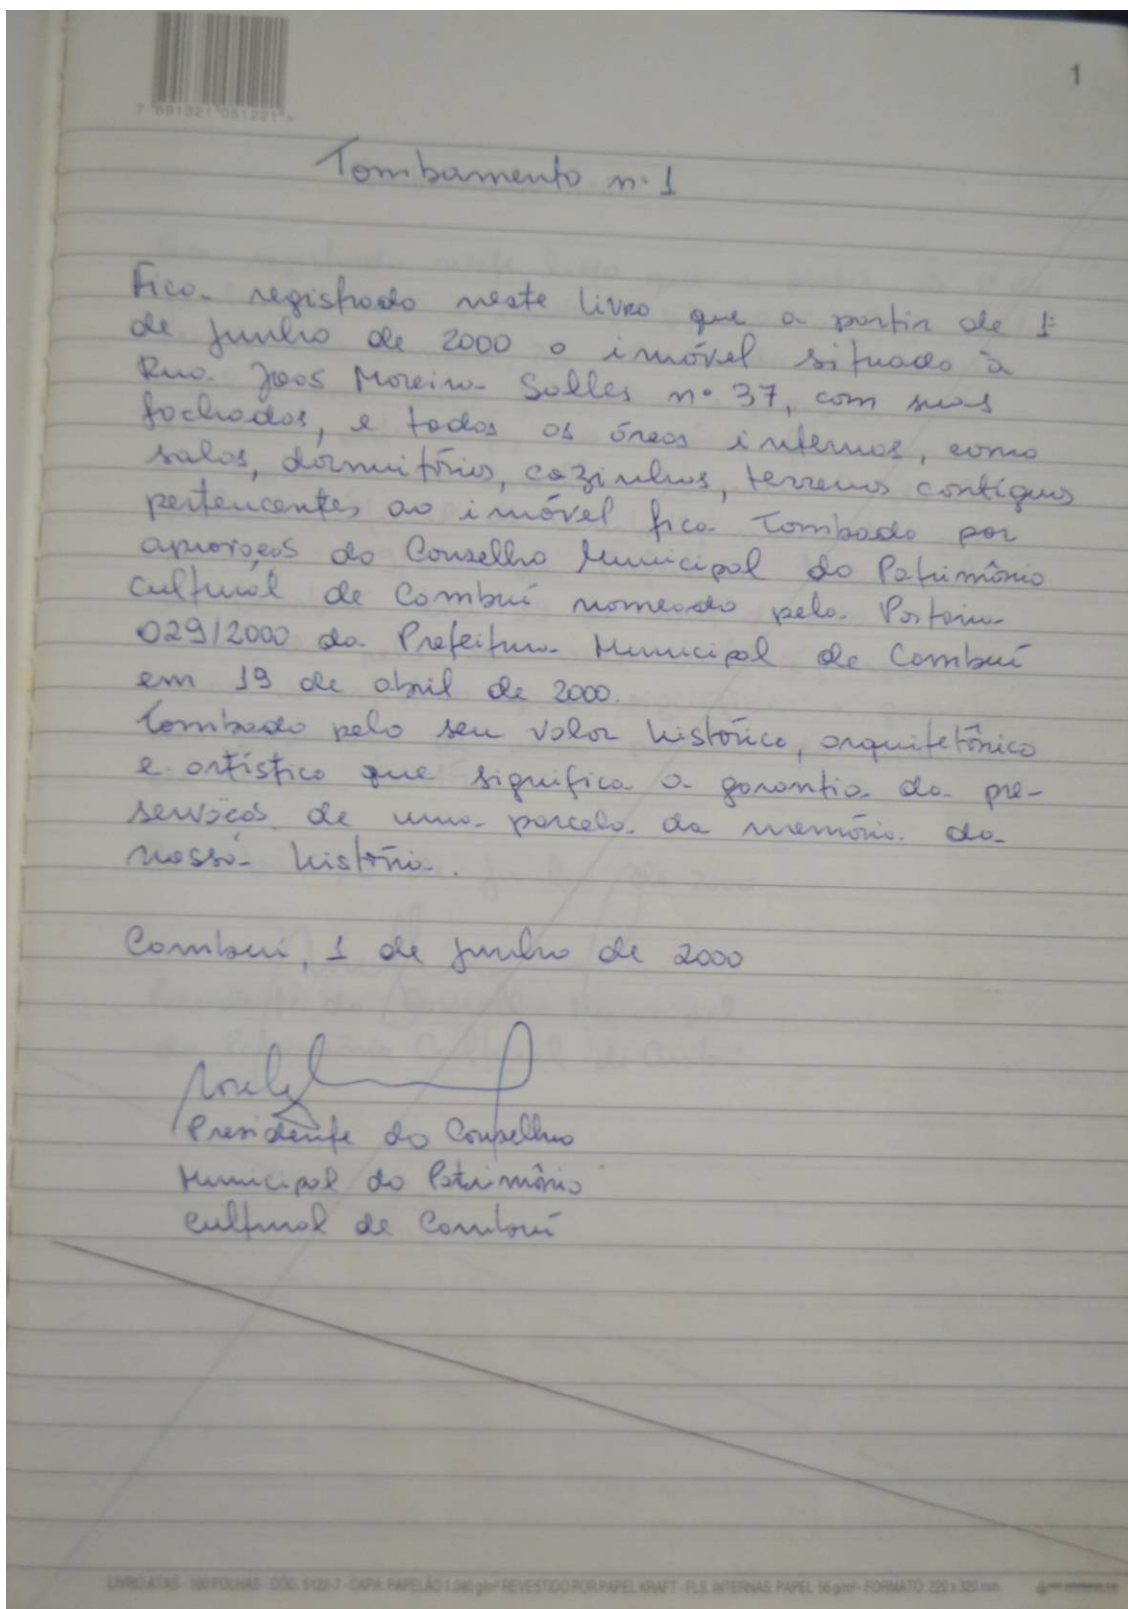 7 891321 051221
1
Tombamento n. 1
Fica registrado neste livro que a partir de 1º
de junho de 2000 o imóvel situado à
Rua João Moreira Salles nº 37, com suas
fachadas, e todas as áreas internas, como
salas, dormitórios, cozinhas, terrenos contíguos
pertencentes ao imóvel fica Tombado por
aprovação do Conselho Municipal do Patrimônio
Cultural de Cambuí nomeado pela Portaria
029/2000 da Prefeitura Municipal de Cambuí
em 19 de abril de 2000.
Tombado pelo seu valor histórico, arquitetônico
e artístico que significa a garantia da pre-
servação de uma parcela da memória da
nossa história.
Cambuí, 1 de junho de 2000
Presidente do Conselho
Municipal do Patrimônio
Cultural de Cambuí
LIVRO ATAS - 100 FOLHAS - CÓD. 5122-7 - CAPA: PAPELÃO 1.040 g/m² REVESTIDO POR PAPEL KRAFT - FLS. INTERNAS: PAPEL 56 g/m² - FORMATO: 220 x 320 mm